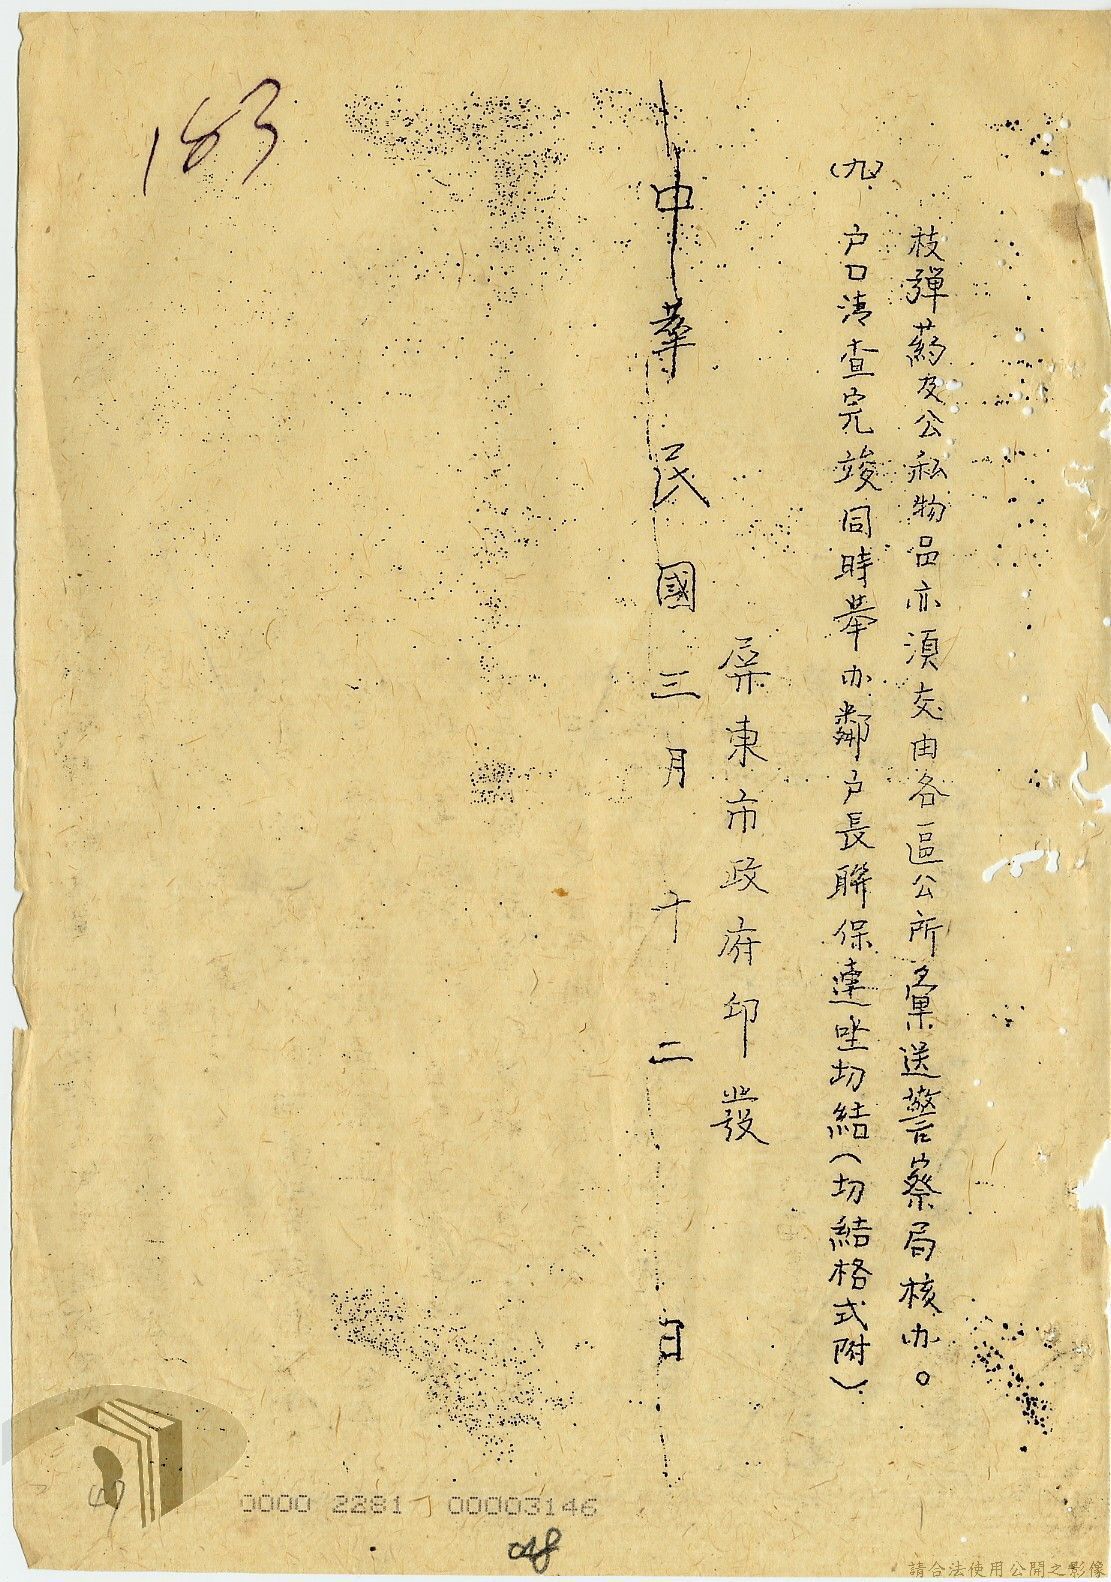 183
枝彈葯及公私物品亦須交由各區公所彚送警察局核办。
(九)户口清查完竣同時举办鄰户長聯保連坐切結(切結格式附)
屏東市政府印發
中華民國三月十二日
0000 2281 00003146
48
請合法使用公開之影像